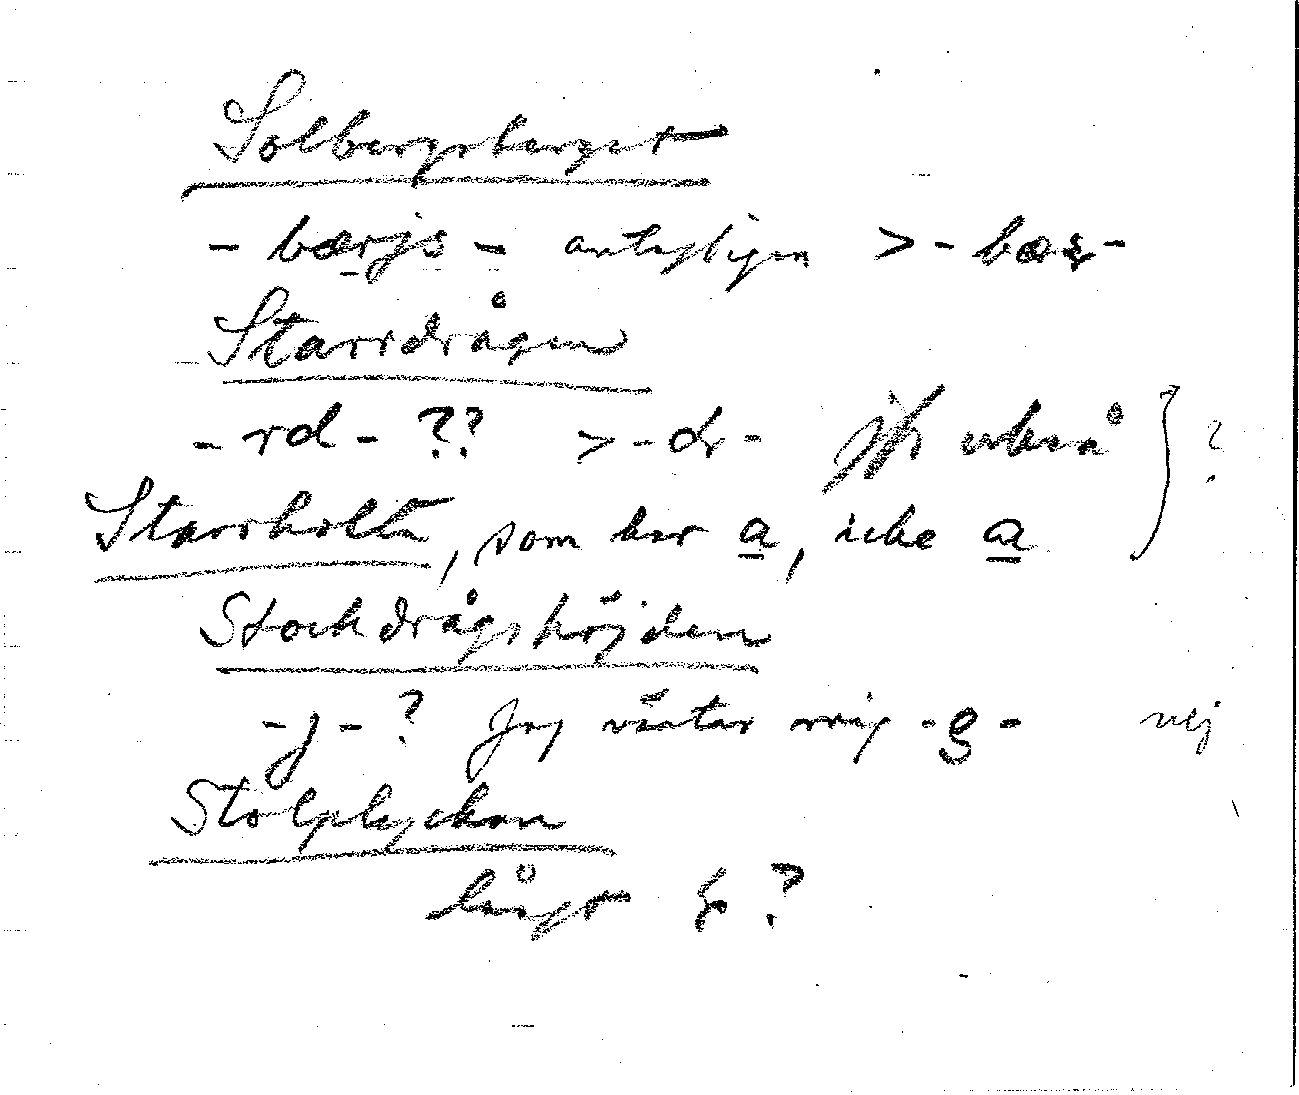 Solbergsberget
- bærjs - antagligen > - bæs -
Starrdrågen
- rd - ?? > - dr - jfr också } ?
Starrholta, som har a, icke a
Stockdrågshöjden
- j - ? Jag väntar mig - g - nej
Stolplyckan
långt ?